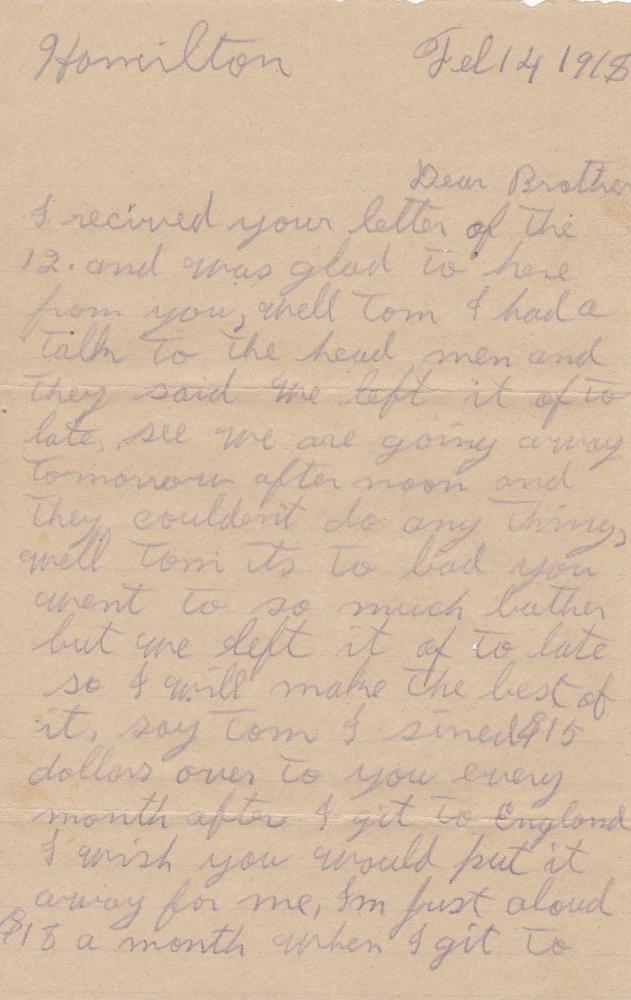 Hamilton Feb 14 1918
Dear Brother
I recived your letter of the
12. and was glad to here
from you, well Tom I had a
talk to the head men and
they said we left it of to
late, see we are going away
tomorrow after noon and
they couldent do any thing,
well Tom its to bad you
went to so much bother
but we left it of to late
so I will make the best of
it, say Tom I sined $15
dollars over to you every
month after I git to England
I wish you would put it
away for me, Im just aloud
$18 a month when I git to